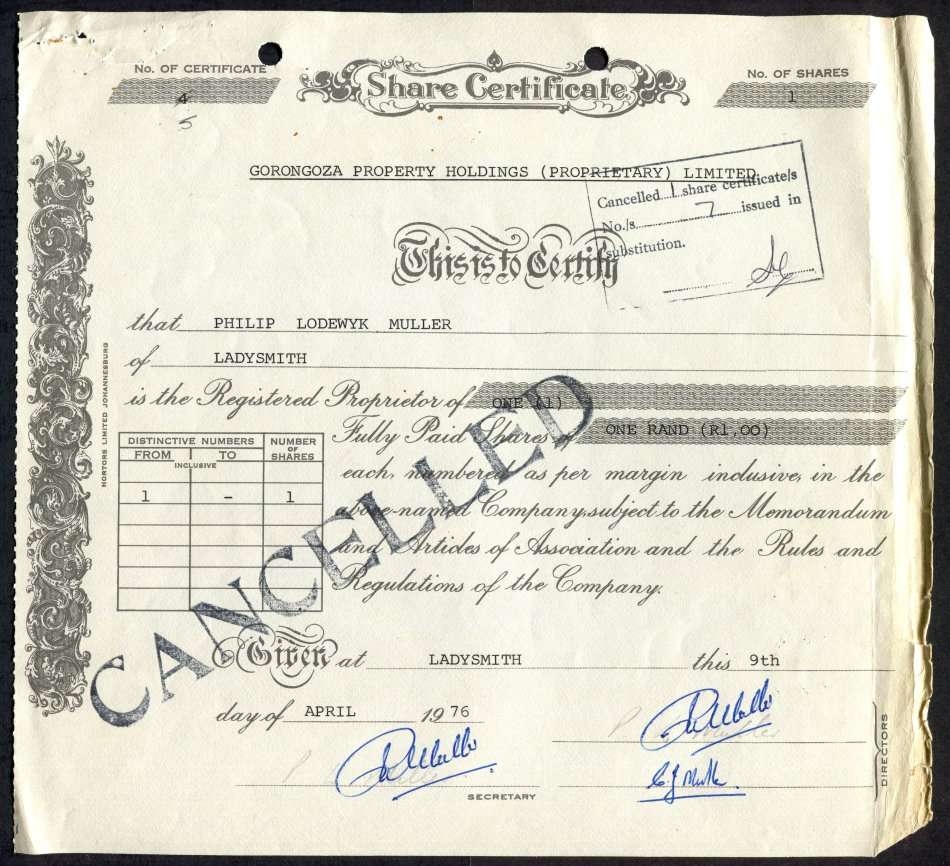 No. OF CERTIFICATE
4
5
Share Certificate
No. OF SHARES
1
GORONGOZA PROPERTY HOLDINGS (PROPRIETARY) LIMITED
Cancelled 1 share certificate/s
No./s 7 issued in
substitution.
This is to Certify
that PHILIP LODEWYK MULLER
of LADYSMITH
is the Registered Proprietor of ONE (1)
Fully Paid Shares of ONE RAND (R1,00)
each, numbered as per margin inclusive, in the
above-named Company, subject to the Memorandum
and Articles of Association and the Rules and
Regulations of the Company.
DISTINCTIVE NUMBERS
NUMBER OF SHARES
FROM TO
INCLUSIVE
1 - 1
HORTORS LIMITED JOHANNESBURG
CANCELLED
Given at LADYSMITH this 9th
day of APRIL 1976
C.J. Muller
SECRETARY
DIRECTORS